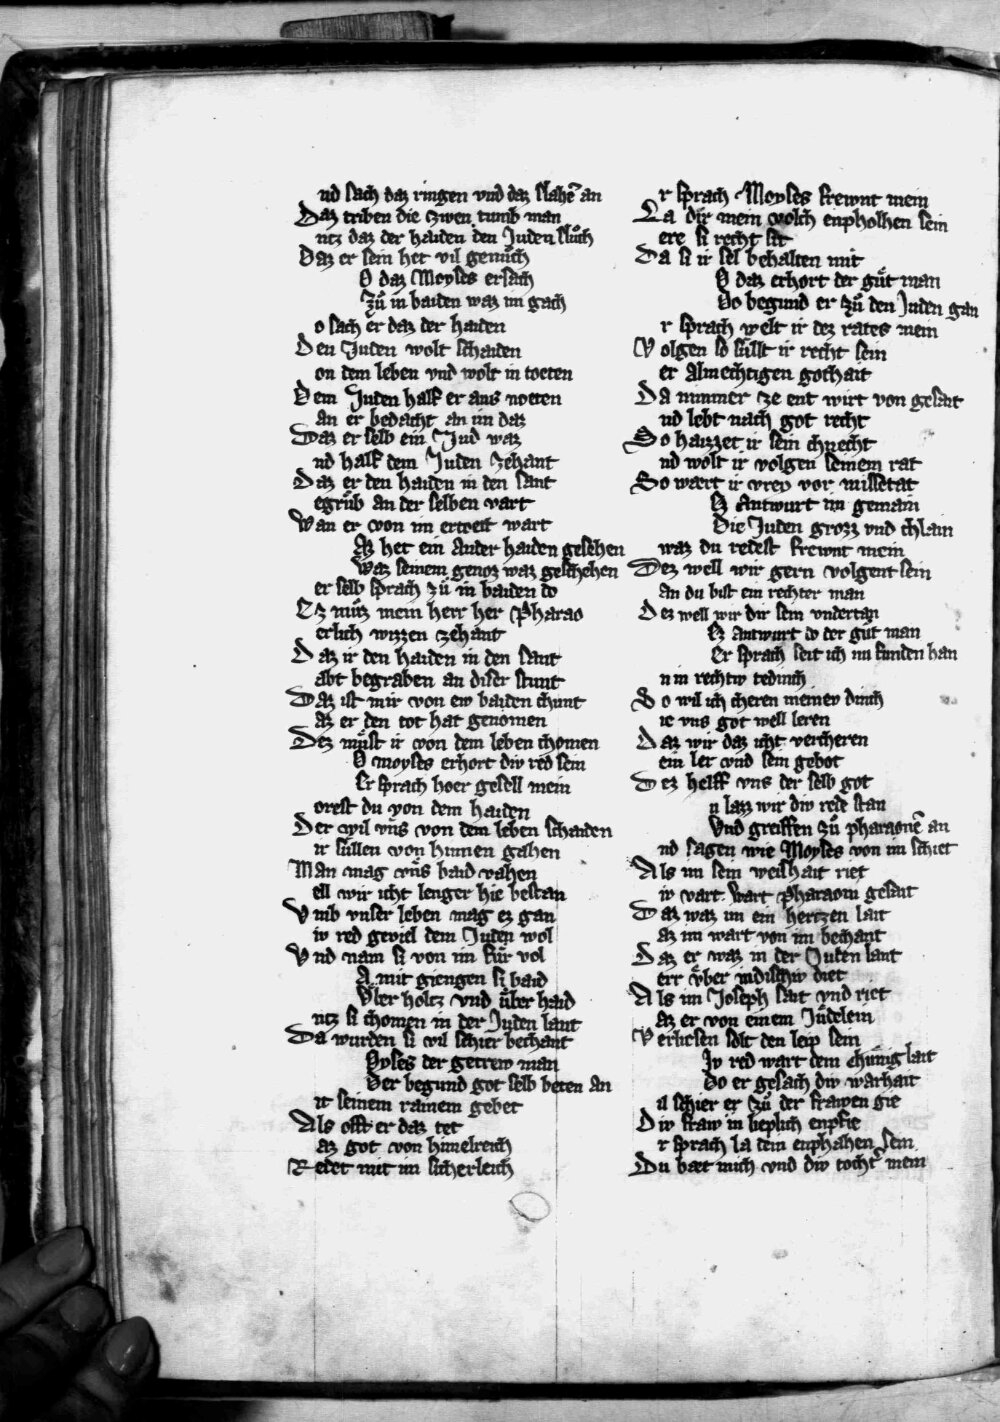 nd sach daz ringen vnd daz slahen an
Daz triben die zwen tumb man
ntz daz der haiden den Juden sluͦch
Daz er sein het vil genuͦch
O daz Moyses ersach
Zuͦ in baiden waz im gach
o sach er daz der haiden
Den Juden wolt schaiden
on dem leben vnd wolt in toeten
Dem Juden half er aus noeten
an er bedacht an im daz
Daz er selb ein Jud waz
nd half dem Juden zehant
Daz er den haiden in den sant
egruͦb an der selben vart
Wan er von im ertoett wart
Az het ein ander haiden gesehen
Waz seinem genoz waz geschehen
er selb sprach zuͦ in baiden do
Ez muͦz mein herr her Pharao
erlich wizzen zehant
Daz ir den haiden in den sant
abt begraben an diser stunt
Daz ist mir von ew baiden chunt
az er den tot hat genomen
Dez muͤst ir von dem leben chomen
O moyses erhort div red sein
Er sprach hoer gesell mein
orest du von dem haiden
Der wil vns von dem leben schaiden
ir sullen von hinnen gahen
Man mag vns baid vahen
ell wir icht lenger hie bestan
Vmb vnser leben mag ez gan
iv red geviel dem Juden wol
Vnd nam si von im fuͤr vol
A mit giengen si baid
Vber holtz vnd vͤber haid
ntz si chomen in der Juden lant
Da wurden si vil schier bechant
Oyses der getrew man
Der begund got selb beten an
it seinem rainem gebet
Als offt er daz tet
az got von himelreich
Redet mit im sicherleich
r sprach Moyses frewnt mein
La dir mein volch enpholhen sein
ere si recht sit
Da si ir sel behalten mit
O daz erhort der guͤt man
Do begund er zuͦ den Juden gan
r sprach welt ir dez rates mein
Volgen so suͤllt ir recht sein
er almechtigen gothait
Da nimmer ze ent wirt von gesait
nd lebt nach got recht
So haizzet ir sein chnecht
nd wolt ir volgen seinem rat
So waert ir vrey vor missetat
Ez antwurt im gemain
Die Juden grozz vnd chlain
waz du redest frewnt mein
Dez well wir gern volgent sein
an du bist ein rechter man
Dez well wir dir sein vndertan
Ez antwurt do der guͤt man
Er sprach seit ich nu funden han
n in rechtiv tedinch
So wil ich cheren meinev dinch
ie vns got well leren
Daz wir daz icht vercheren
ein ler vnd sein gebot
Dez helff vns der selb got
n lazz wir div rede stan
Vnd greiffen zuͦ pharaonen an
nd sagen wie Moyses von im schiet
Als im sein weishait riet
iv vart wart Pharaoni gesait
Daz waz im ein hertzen lait
az im wart von im bechant
Daz er waz in der Juden lant
err vͤber iudischiv diet
Als im Joseph sait vnd riet
az er von einem Juͤdelein
Verliesen solt den leip sein
Iv red wart dem chuͤnig lait
Do er gesach div warhait
il schier er zuͦ der frawen gie
Div fraw in lieplich enpfie
r sprach la dein enphahen sein
Du baet mich vnd div tochter mein